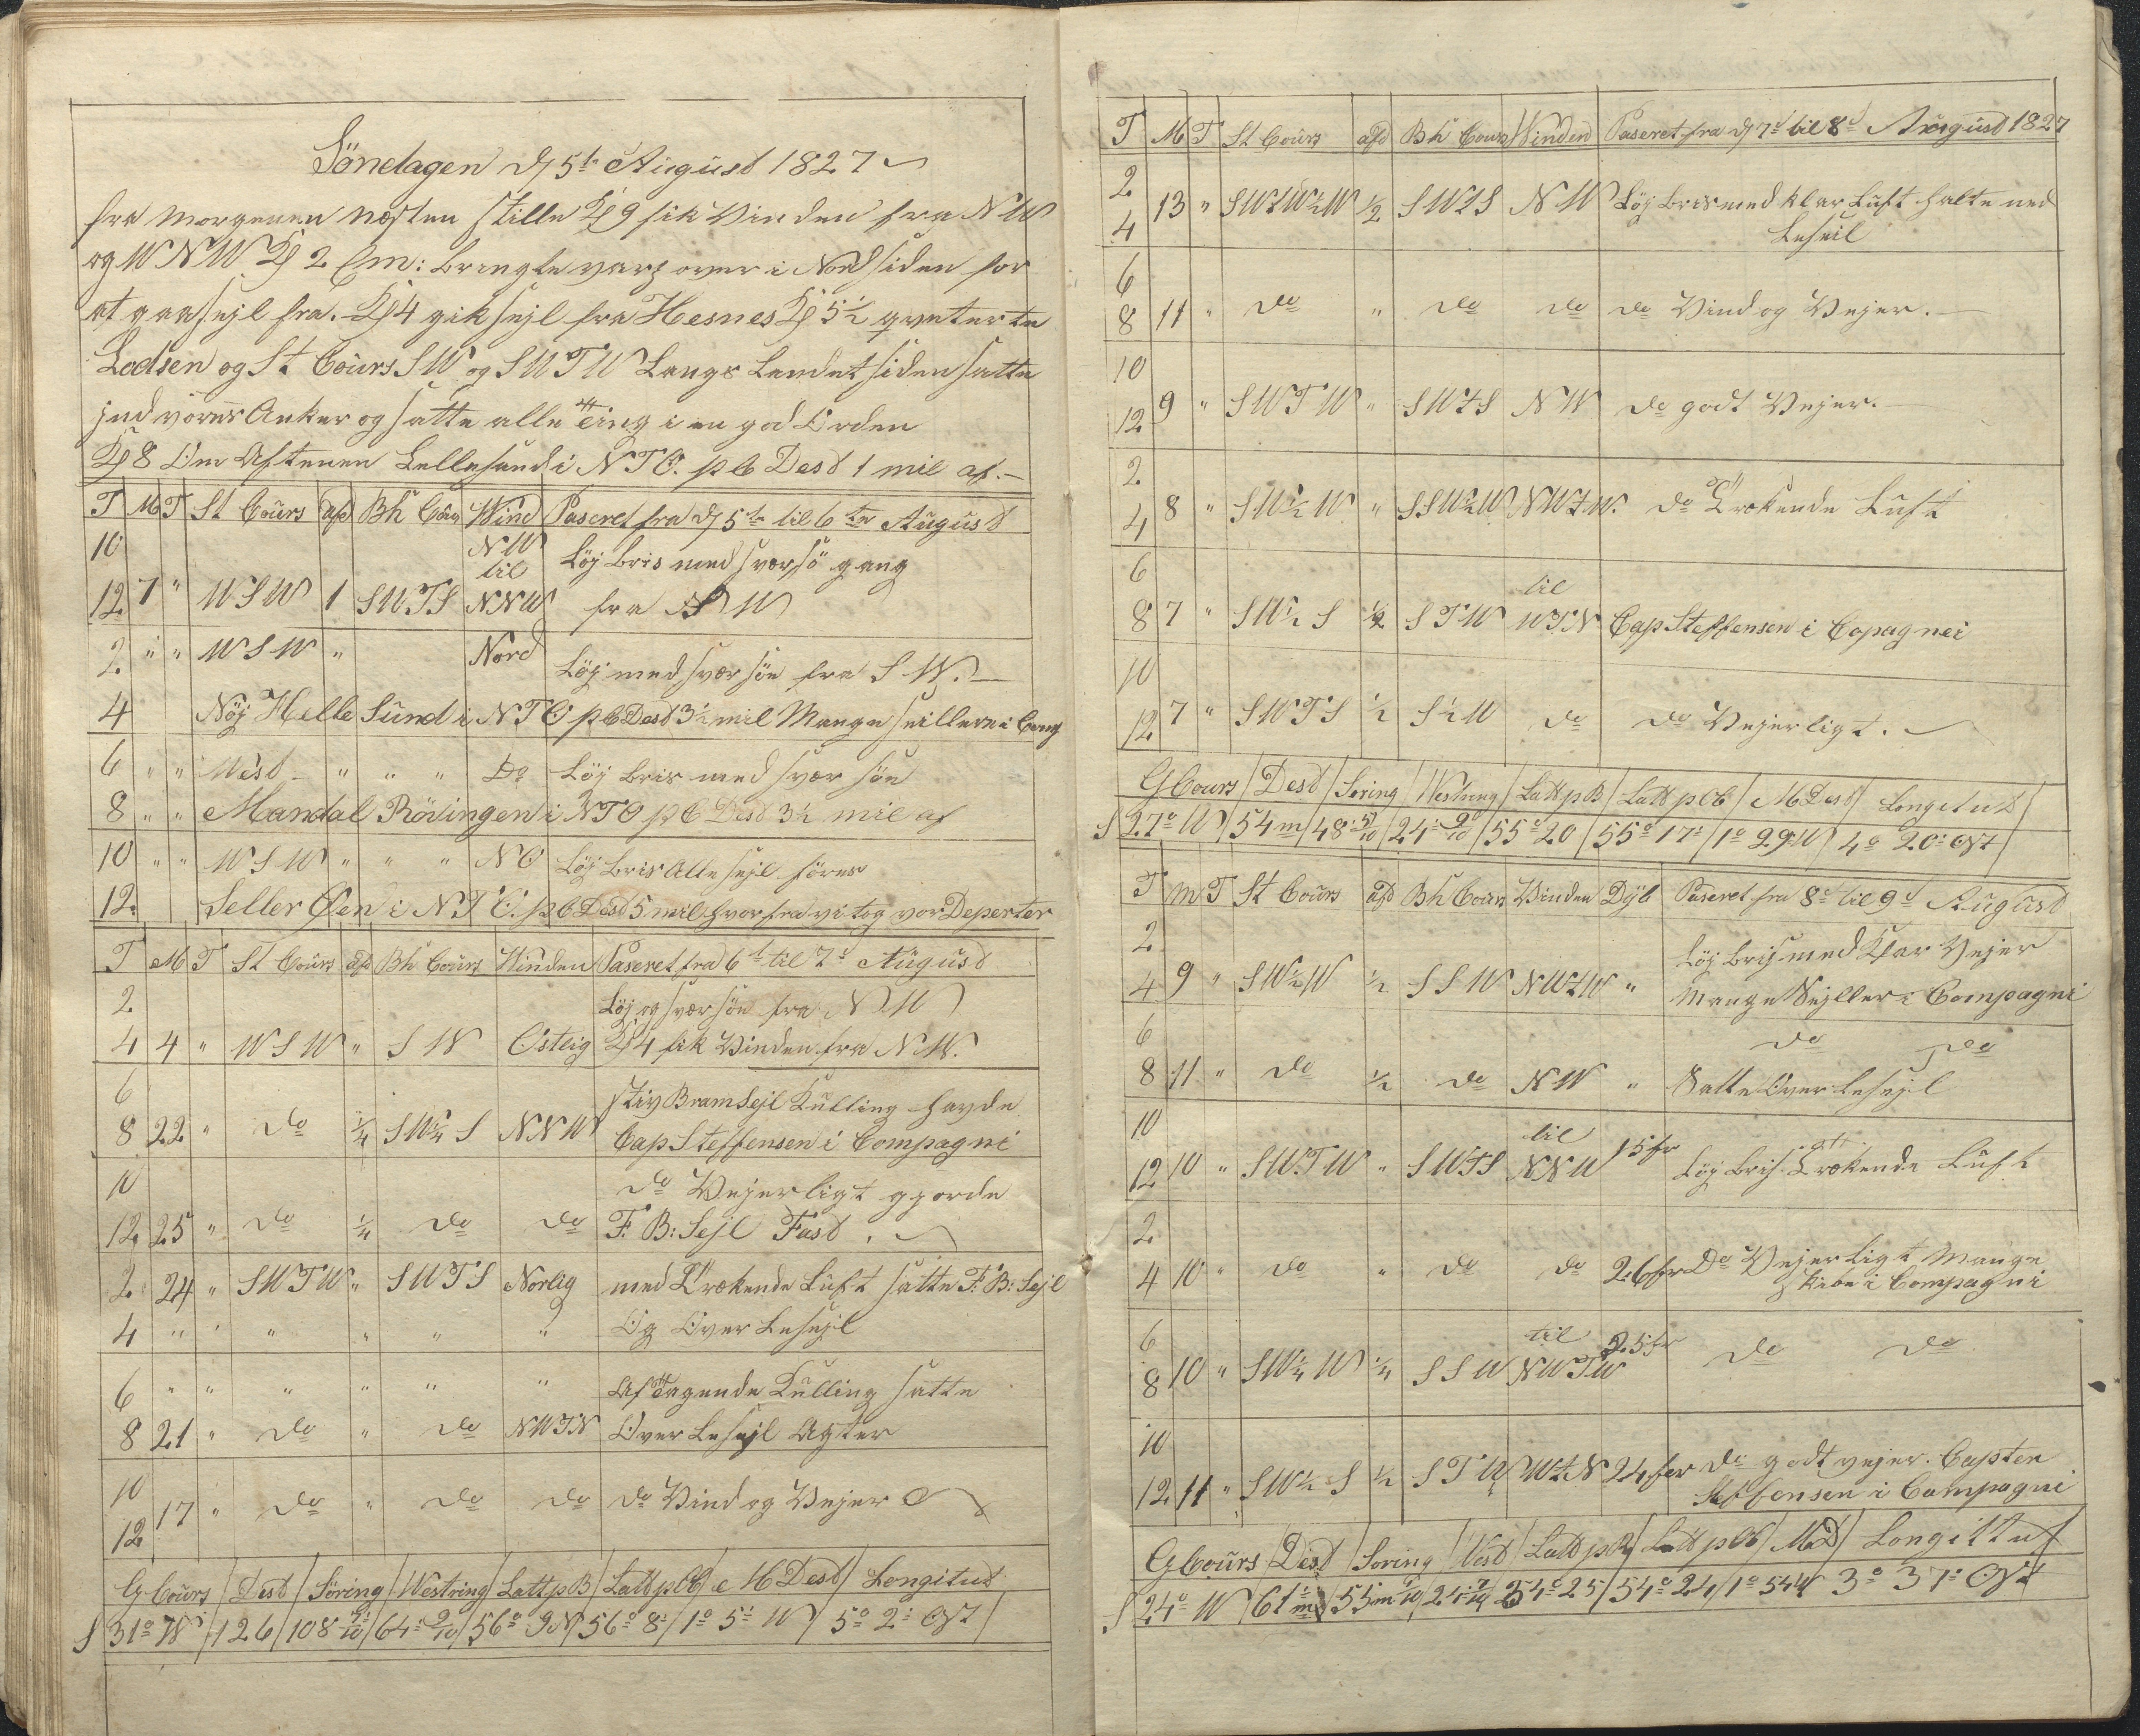 Söndagen d 5te August 1827
fra Morgenen næsten Stille Kl 9 fik Vinden fra NW
og WNW Kl 2 Em: bragte varp over i Nordsiden for
at gaa sejl fra. Kl 4 gik sejl fra Hesnes Kl 5½ qviterte
Lodsen og St Cours SW og SWTW Langs Landet siden satte
ind vores Anker og satte alle Ting i en god Orden
Kl 8 Om Aftenen Lellesand i NTO. p C Dest 1 mil af.
T M T St Cours afd Bh Cours Wind Paseret fra d 5te til 6te August
10 NW Löj bris med svær sö gang
til
12 7 " WSW 1 SWTS NNW fra SW
2 " " WSW " Nord Löj med svær söe fra SW.
4 Nöj Helle Sund i NTO p C Dest 3½ mil Mange seillere i Comp
6 " " West " " " Do Löj bris med svær söe
8 " " Mandal Rösingen i NTO p C Dest 3½ mil af
10 " " WSW " " " NO Löj bris Alle sejl föres
12 Seller Øen i NTO. p C Dest 5 mil hvorfra vi tog vor Deperter
T M T St Cours afd Bh Cours Winden Paseret fra 6te til 7d August
2 Löj og svær söe fra NW
4 4 " WSW " SW Ostlig Kl 4 fik Vinden fra NW.
6 stiv Bramsejl Kulling havde
8 22 " do ¼ SW¼S NNW Cap Steffensen i Compagni
10 do Vejerligt gjorde
12 25 " do ¼ do do F. B: Sejl Fast.
2 24 " SWTW " SWTS Norlig med Trækende Luft satte F: B: Sejl
4 " " " " " " Og Over Lesejl
6 " " " " " " Aftagende Kulling satte
8 21 " do " do NWTN Over Lesejl Agter
10
12 17 " do " do do do Vind og Vejer
G Cours / Dest / Söring / Westring / Latt p B / Latt p Ob / M Dest / Longitud
S 31° W / 126 / 108 / 64 9/10 / 56° 9 N / 56° 8 / 1° 5 W / 5° 2 Ost
T M T St Cours afd Bh Cours Winden Paseret fra d 7d til 8d August 1827
2
4 13 " SWTW½W ½ SWTS NW Löj bris med klar Luft halte ned
Leseil
6
8 11 " do " do do do Vind og Vejer.
10
12 9 " SWTW " SWTS NW do godt Vejer.
2
4 8 " SW½W " SSW½W NWTW. do Trækende Luft
6 til
8 7 " SW½S ½ STW WTN Cap Steffensen i Copagnei
10
12 7 " SWTS ½ S½W do do Vejerligt.
G Cours / Dest / Soring / Westring / Latt p B / Latt p Ob / M Dest / Longitud
S 27° W / 54 m / 48 5/10 / 24 9/10 / 55° 20 / 55° 17 / 1° 29 W / 4° 20 Ost
T m T St Cours afd Bh Cours Vinden Dÿb Paseret fra 8d til 9d August
2 Löj bris med Klar Vejer
4 9 " SW½W ½ SSW NWTW " Mange Sejller i Compagni
6 do do
8 11 " do ½ do NW " Satte Over Lesejl
10 til
12 10 " SWTW " SWTS NNW 15 fv Löj bris Trækende Luft
2
4 10 " do " do do 26 fv Do Vejerligt Mange
Skibe i Compagni
6 til 25 fv
8 10 " SW¼W ¼ SSW NWTW do do
10
12 11 " SW½S ½ STW WTN 24 fav do godt vejer. Capten
Steffensen i Compagni
G Cours / Dest / Soring / Vest / Latt p B / Latt p Ob / M D / Longittud
S 24° W / 61 m / 55 m / 24 7/10 / 54° 25 / 54° 24 / 1° 54 W 3° 37 Ost